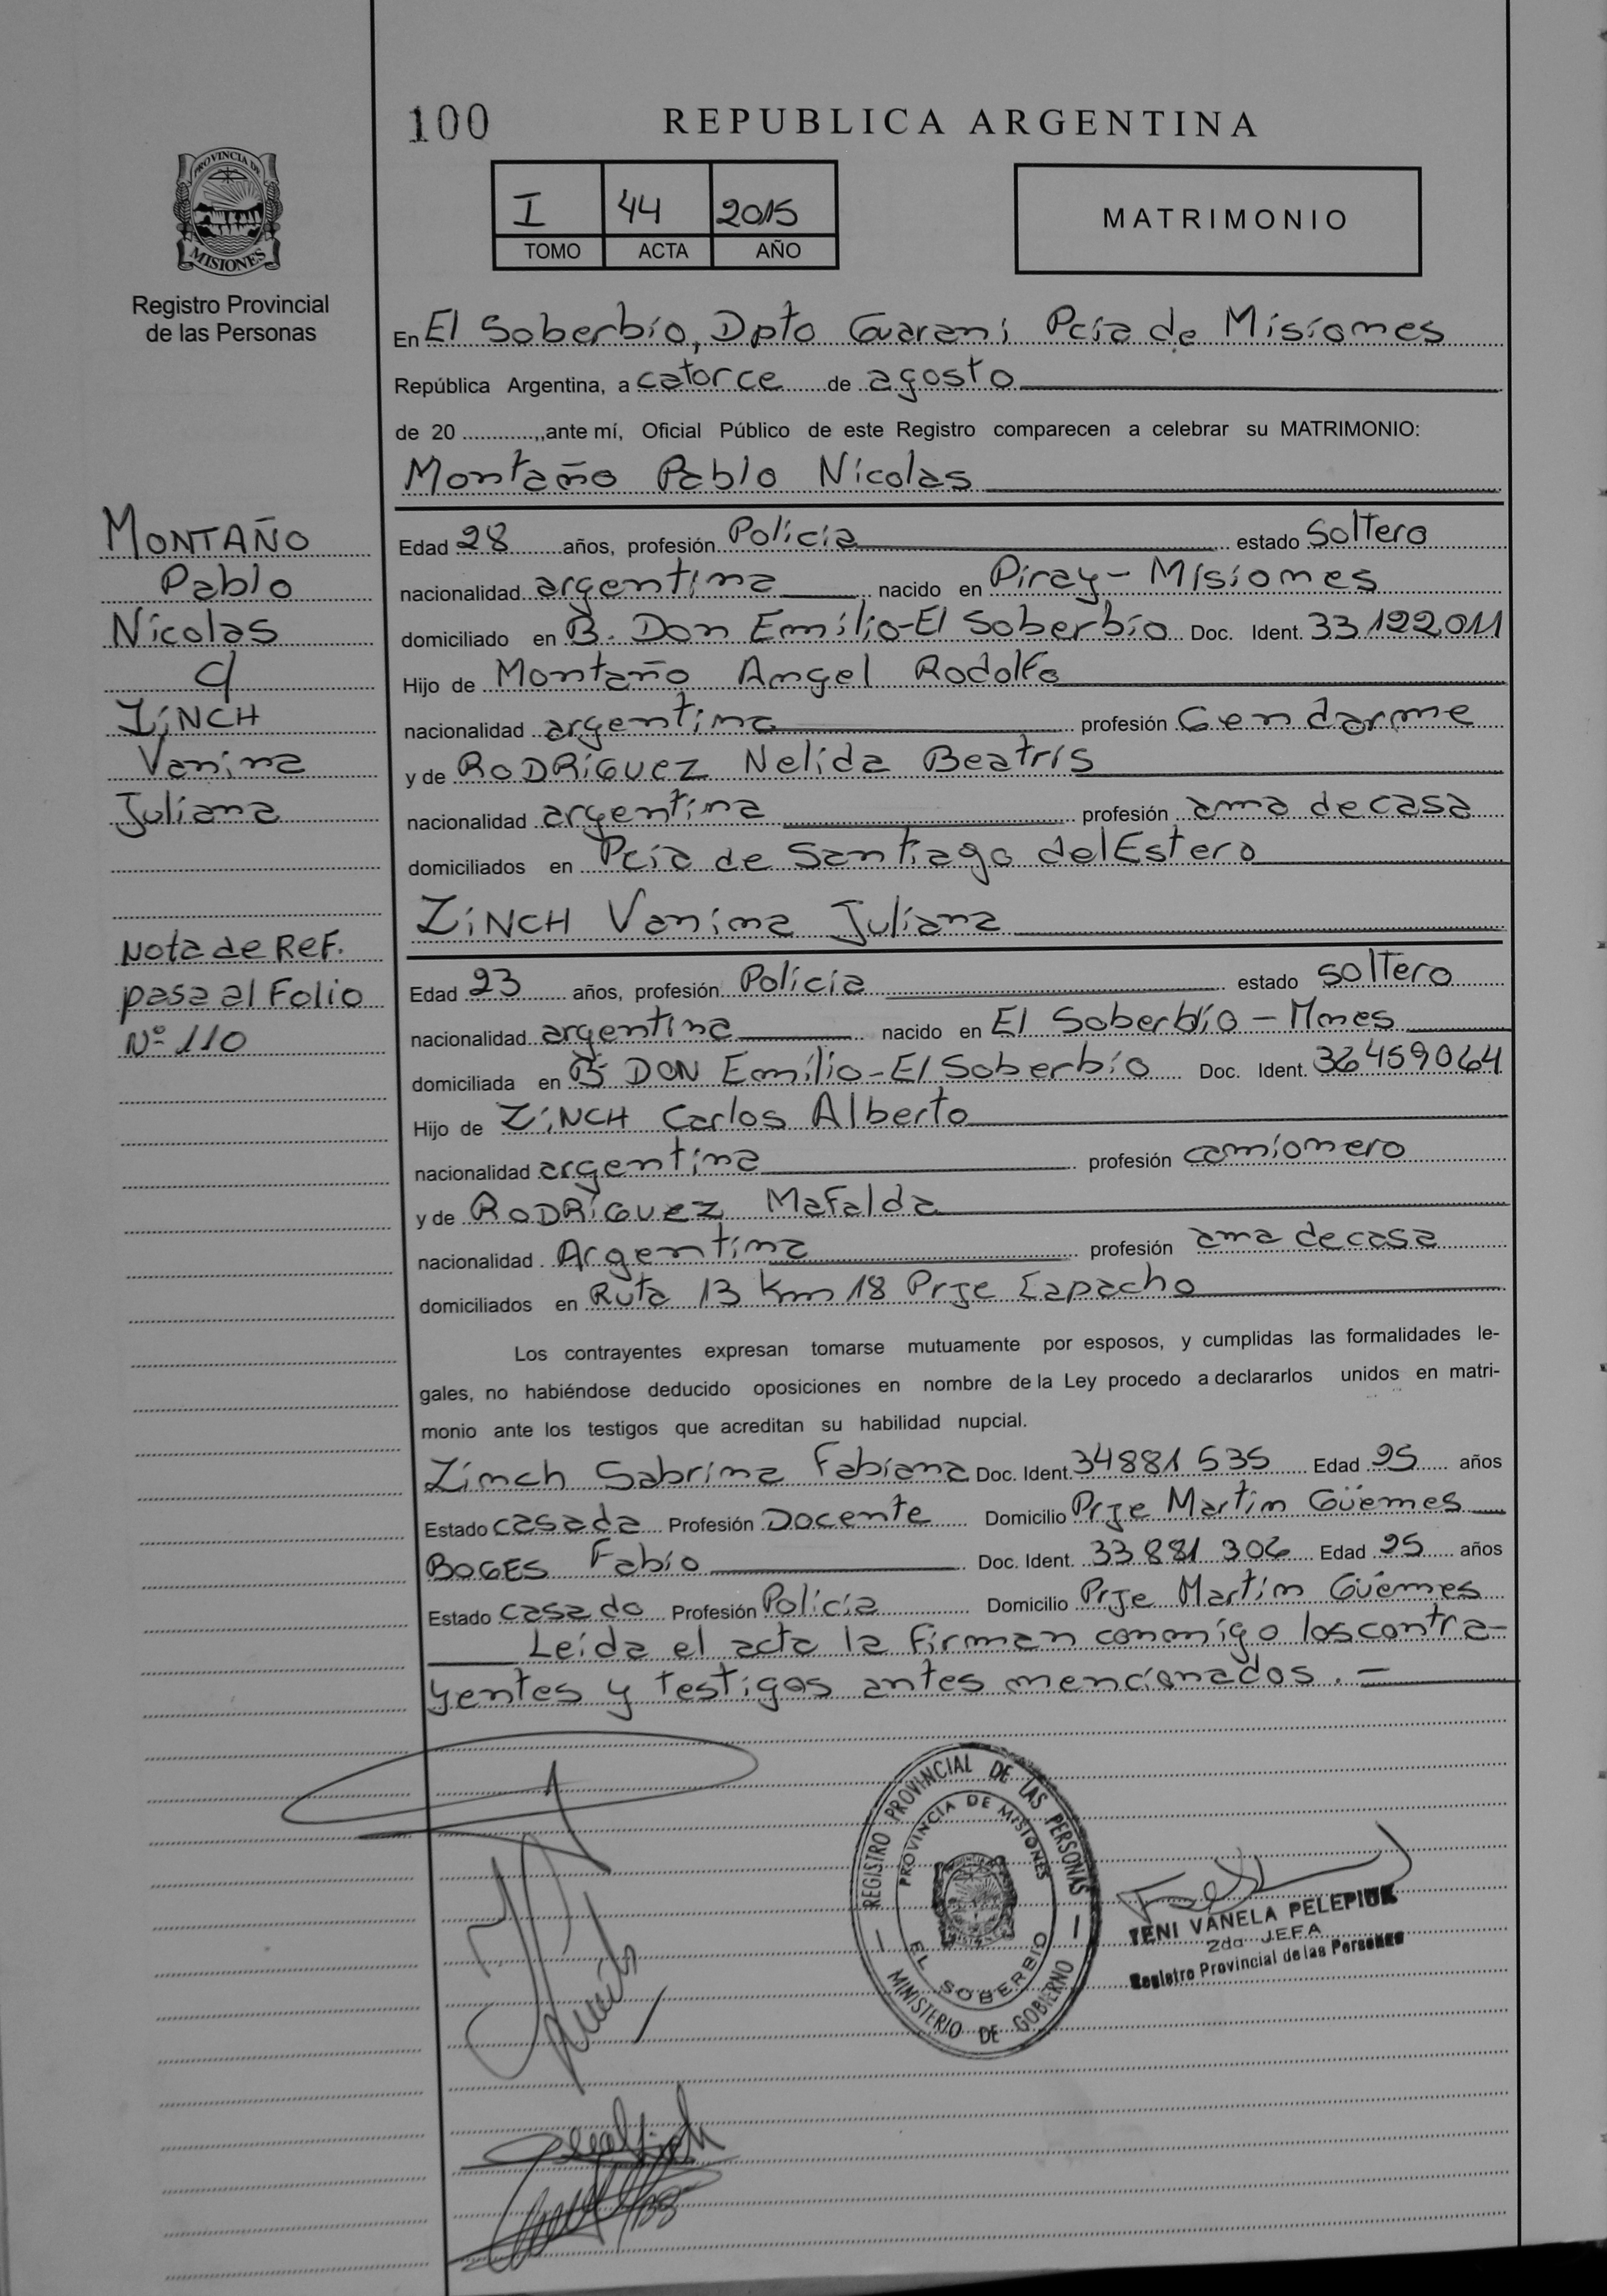 100
REPUBLICA ARGENTINA
PROVINCIA DE
MISIONES
Registro Provincial
de las Personas
I 44 2015
TOMO ACTA AÑO
MATRIMONIO
En El Soberbio, Dpto Guarani Pcia de Misiones
República Argentina, a catorce de agosto
de 20 ............,,ante mí, Oficial Público de este Registro comparecen a celebrar su MATRIMONIO:
Montaño Pablo Nicolas
MONTAÑO
Pablo
Nicolas
c/
ZiNCH
Vanina
Juliana
Nota de Ref.
pasa al Folio
Nº 110
Edad 28 años, profesión Policia estado soltero
nacionalidad argentina nacido en Piray - Misiones
domiciliado en B. Don Emilio - El Soberbio Doc. Ident. 33122011
Hijo de Montaño Angel Rodolfo
nacionalidad argentina profesión Gendarme
y de RODRiGUEZ Nelida Beatris
nacionalidad argentina profesión ama de casa
domiciliados en Pcia de Santiago del Estero
ZiNCH Vanina Juliana
Edad 23 años, profesión Policia estado soltero
nacionalidad argentina nacido en El Soberbio - Mnes
domiciliada en B- DON Emilio - El Soberbio Doc. Ident. 36459064
Hijo de ZiNCH Carlos Alberto
nacionalidad argentina profesión camionero
y de RODRiGUEZ Mafalda
nacionalidad Argentina profesión ama de casa
domiciliados en Ruta 13 Km 18 Prje Lapacho
Los contrayentes expresan tomarse mutuamente por esposos, y cumplidas las formalidades le-
gales, no habiéndose deducido oposiciones en nombre de la Ley procedo a declararlos unidos en matri-
monio ante los testigos que acreditan su habilidad nupcial.
Zinch Sabrina Fabiana Doc. Ident. 34881535 Edad 25 años
Estado casada Profesión Docente Domicilio Prje Martin Güemes
BOGES Fabio Doc. Ident. 33881306 Edad 25 años
Estado casado Profesión Policia Domicilio Prje Martin Güemes
Leida el acta la firman conmigo los contra-
yentes y testigos antes mencionados. -
REGISTRO PROVINCIAL DE LAS PERSONAS
PROVINCIA DE MISIONES
EL SOBERBIO
MINISTERIO DE GOBIERNO
YENI VANELA PELEPIUK
2da JEFA
Registro Provincial de las Personas